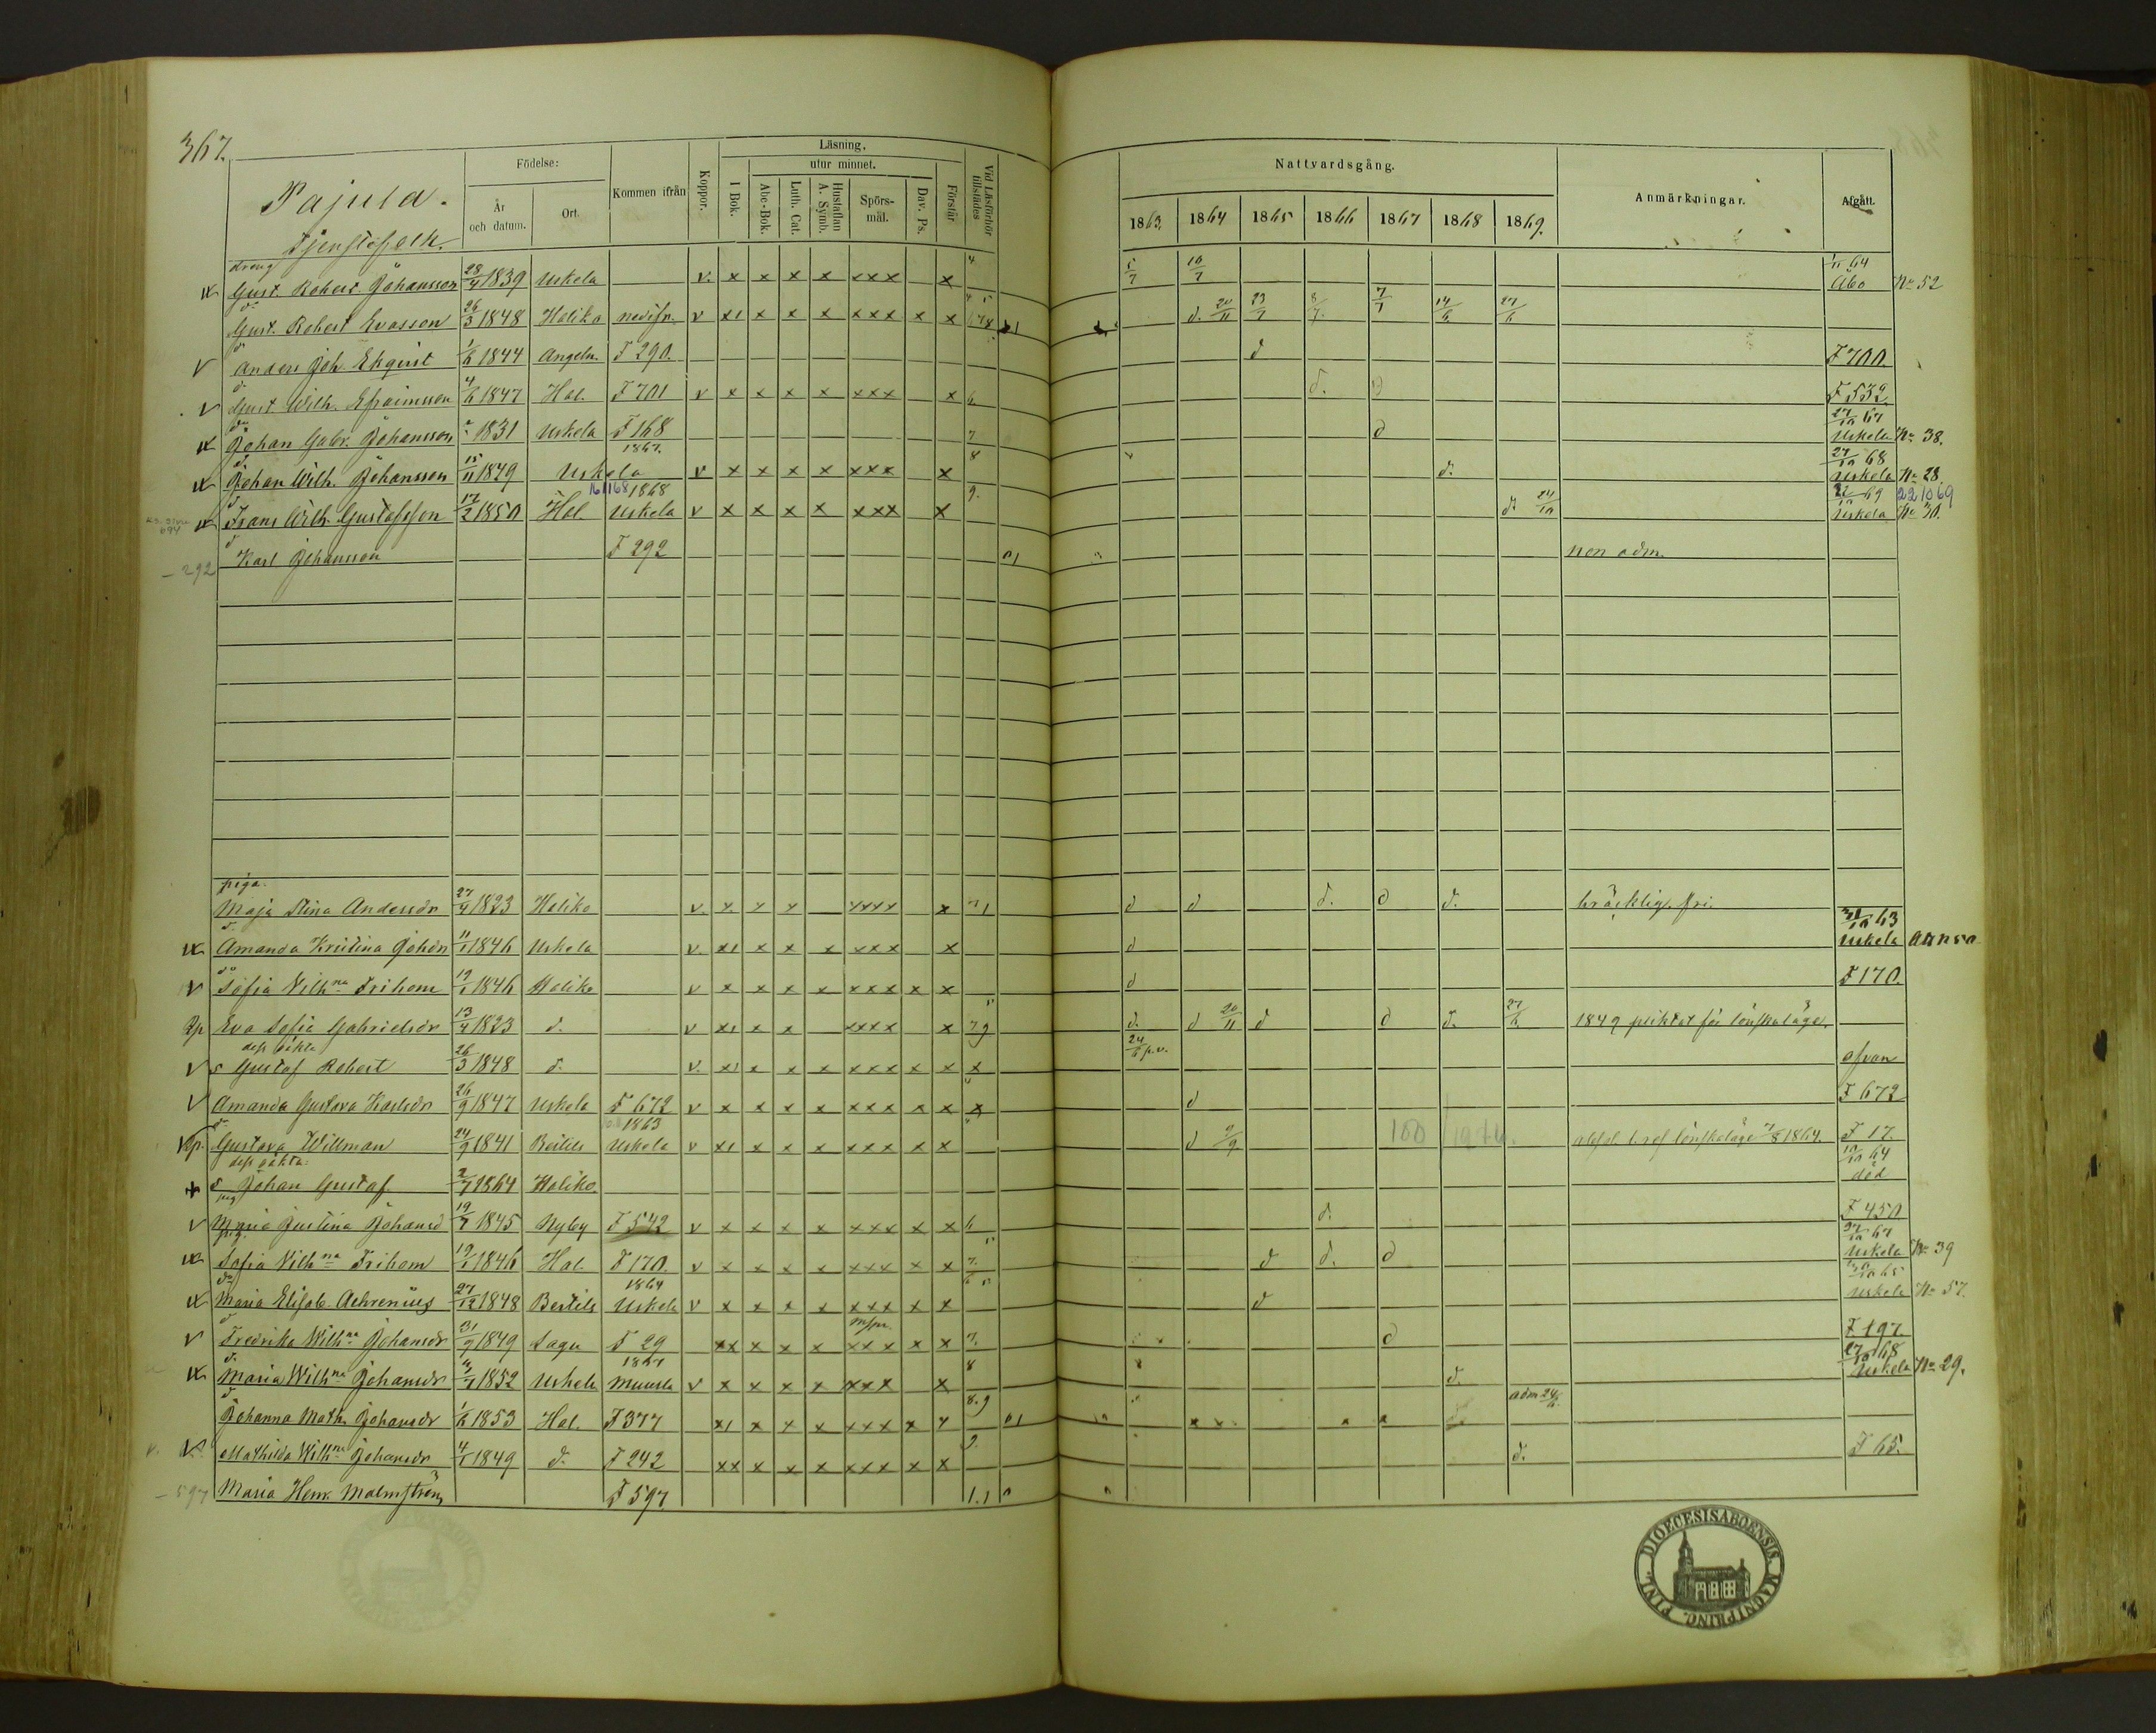 367.
Pajula.
Tjenstefolk.
Födelse:
År och datum.
Ort.
Kommen ifrån
Koppor.
Läsning,
utur minnet.
I Bok.
Abc-Bok.
Luth. Cat.
Hustaflan A. Symb.
Spörsmål.
Dav. Ps.
Förstår
Vid Läsförhör tillstädes
Nattvardsgång.
1863. 1864 1865 1866 1867 1868 1869.
Anmärkningar.
Afgått.
dräng Gust. Robert Johansson 28/4 1839 Uskela v. x x x x xxx x 4 5/7 10/7 1/11 64 Åbo No 52
do Gust. Robert Evasson 26/3 1848 Haliko nedifr. v x x x x xxx x x d. 20/11 23/7 8/7. 7/7 14/6 27/6
V d Anders Joh. Ekqvist 1/6 1844 Angeln. F 290. d F 700.
V d. Gust. Wilh. Efraimsson 4/6 1847 Hal. F 701 v x x x x xxx x 6. d. d F 532.
do Johan Gabr. Johansson 1831 Uskela F 168 7 d 27/10 67 Uskela No 38.
d. Johan Wilh. Johansson 15/11 1849 1867. Uskela v x x x x xxx x 8 d. 27/10 68 Uskela No 28.
d Frans Wilh. Gustafsson 17/2 1850 Hal. 161168 1868 Uskela v x x x x xxx x 9. d. 24/10 22/10 69 Uskela 221069 No 30.
-292 d Karl Johansson F 292 non adm.
piga. Maja Stina Andersdr 27/4 1823 Haliko v. x x x xxxx x d d d. d d. bräcklig. fri.
d. Amanda Kristina Johdr 11/1 1846 Uskela v. x x x x xxx x d 31/10 63 Uskela
V do Sofia Wilhna Frihom 19/1 1846 Haliko v x x x x xxx x x d F 170.
Eva Sofia Gabrielsdr 13/4 1823 d. v x x x xxxx x 7 9 d. d 20/11 d d d. 27/6 1849 pliktat för lönskaläge.
dess oäkta
V s Gustaf Robert 26/3 1848 d. v. x x x x xxx x x x 24/6 p.v. ofvan
V Amanda Gustava Karlsdr 26/9 1847 Uskela F 672 v x x x x xxx x x x d F 672
d. Gustava Willman 24/9 1841 Bertils 1863 Uskela v x x x x xxx x x d 9/9. lönskaläge 1864. F 17.
dess oäkta:
s Johan Gustaf 2/7 1864 Haliko. 10/10 64 död
V pig Maria Justina Johansd 19/7 1845 Nyby F 542 v x x x x xxx x x 6 d. F 450
pig. Sofia Wilhna Frihom 19/1 1846 Hal. F 170. v x x x x xxx x x 7. d d. d 27/10 67 Uskela No 39
do Maria Elisab. Achrenius 27/12 1848 Bertils 1864 Uskela v x x x x xxx x x d 65 Uskela No 57.
V d Fredrika Wilhna Johansdr 31/9 1849 Sagu F 29 xx x x x xxx x x 7. d F 197.
d. Maria Wilhna Johansdr 1852 Uskela 1867 Muurla v x x x x xxx x 8 d. 27/10 68 Uskela No 29.
d Johanna Math. Johansdr 1/6 1853 Hal. F 377 x x x x xxx x x 8. 9 adm 24/6.
V Mathilda Wilhna Johansdr 4/1 1849 d. F 242 xx x x x xxx x x 9. d. F 65.
-597 Maria Henr. Malmström F 597
DIOECESIS ABOENSIS MAGNI PRINC. FINL.